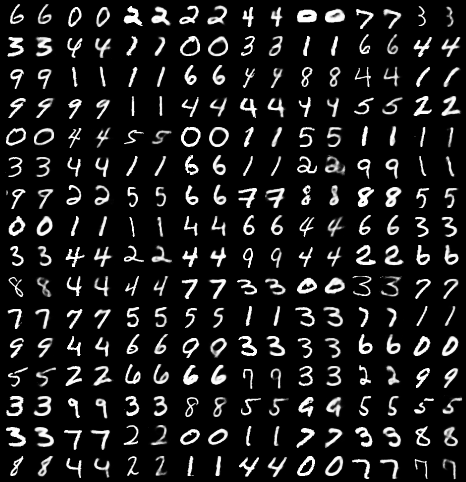 6 6 0 0 2 2 2 2 4 4 0 0 7 7 3 3
3 3 4 4 1 1 0 0 3 3 1 1 6 6 4 4
9 9 1 1 1 1 6 6 4 4 8 8 4 4 1 1
9 9 9 9 1 1 4 4 4 4 4 4 5 5 2 2
0 0 4 4 5 5 0 0 1 1 5 5 1 1 1 1
3 3 4 4 1 1 6 6 1 1 2 2 9 9 1 1
9 9 2 2 5 5 6 6 7 7 8 8 8 8 5 5
0 0 1 1 1 1 4 4 6 6 4 4 6 6 3 3
3 3 4 4 2 2 4 4 9 9 4 4 2 2 6 6
8 8 4 4 4 4 7 7 3 3 0 0 3 3 7 7
7 7 7 7 5 5 5 5 1 1 3 3 7 7 1 1
9 9 4 4 6 6 0 0 3 3 3 3 6 6 0 0
5 5 2 2 6 6 6 6 7 7 3 3 2 2 9 9
3 3 9 9 3 3 8 8 5 5 9 9 5 5 5 5
3 3 7 7 2 2 0 0 1 1 7 7 3 3 8 8
8 8 4 4 2 2 1 1 4 4 0 0 7 7 7 7